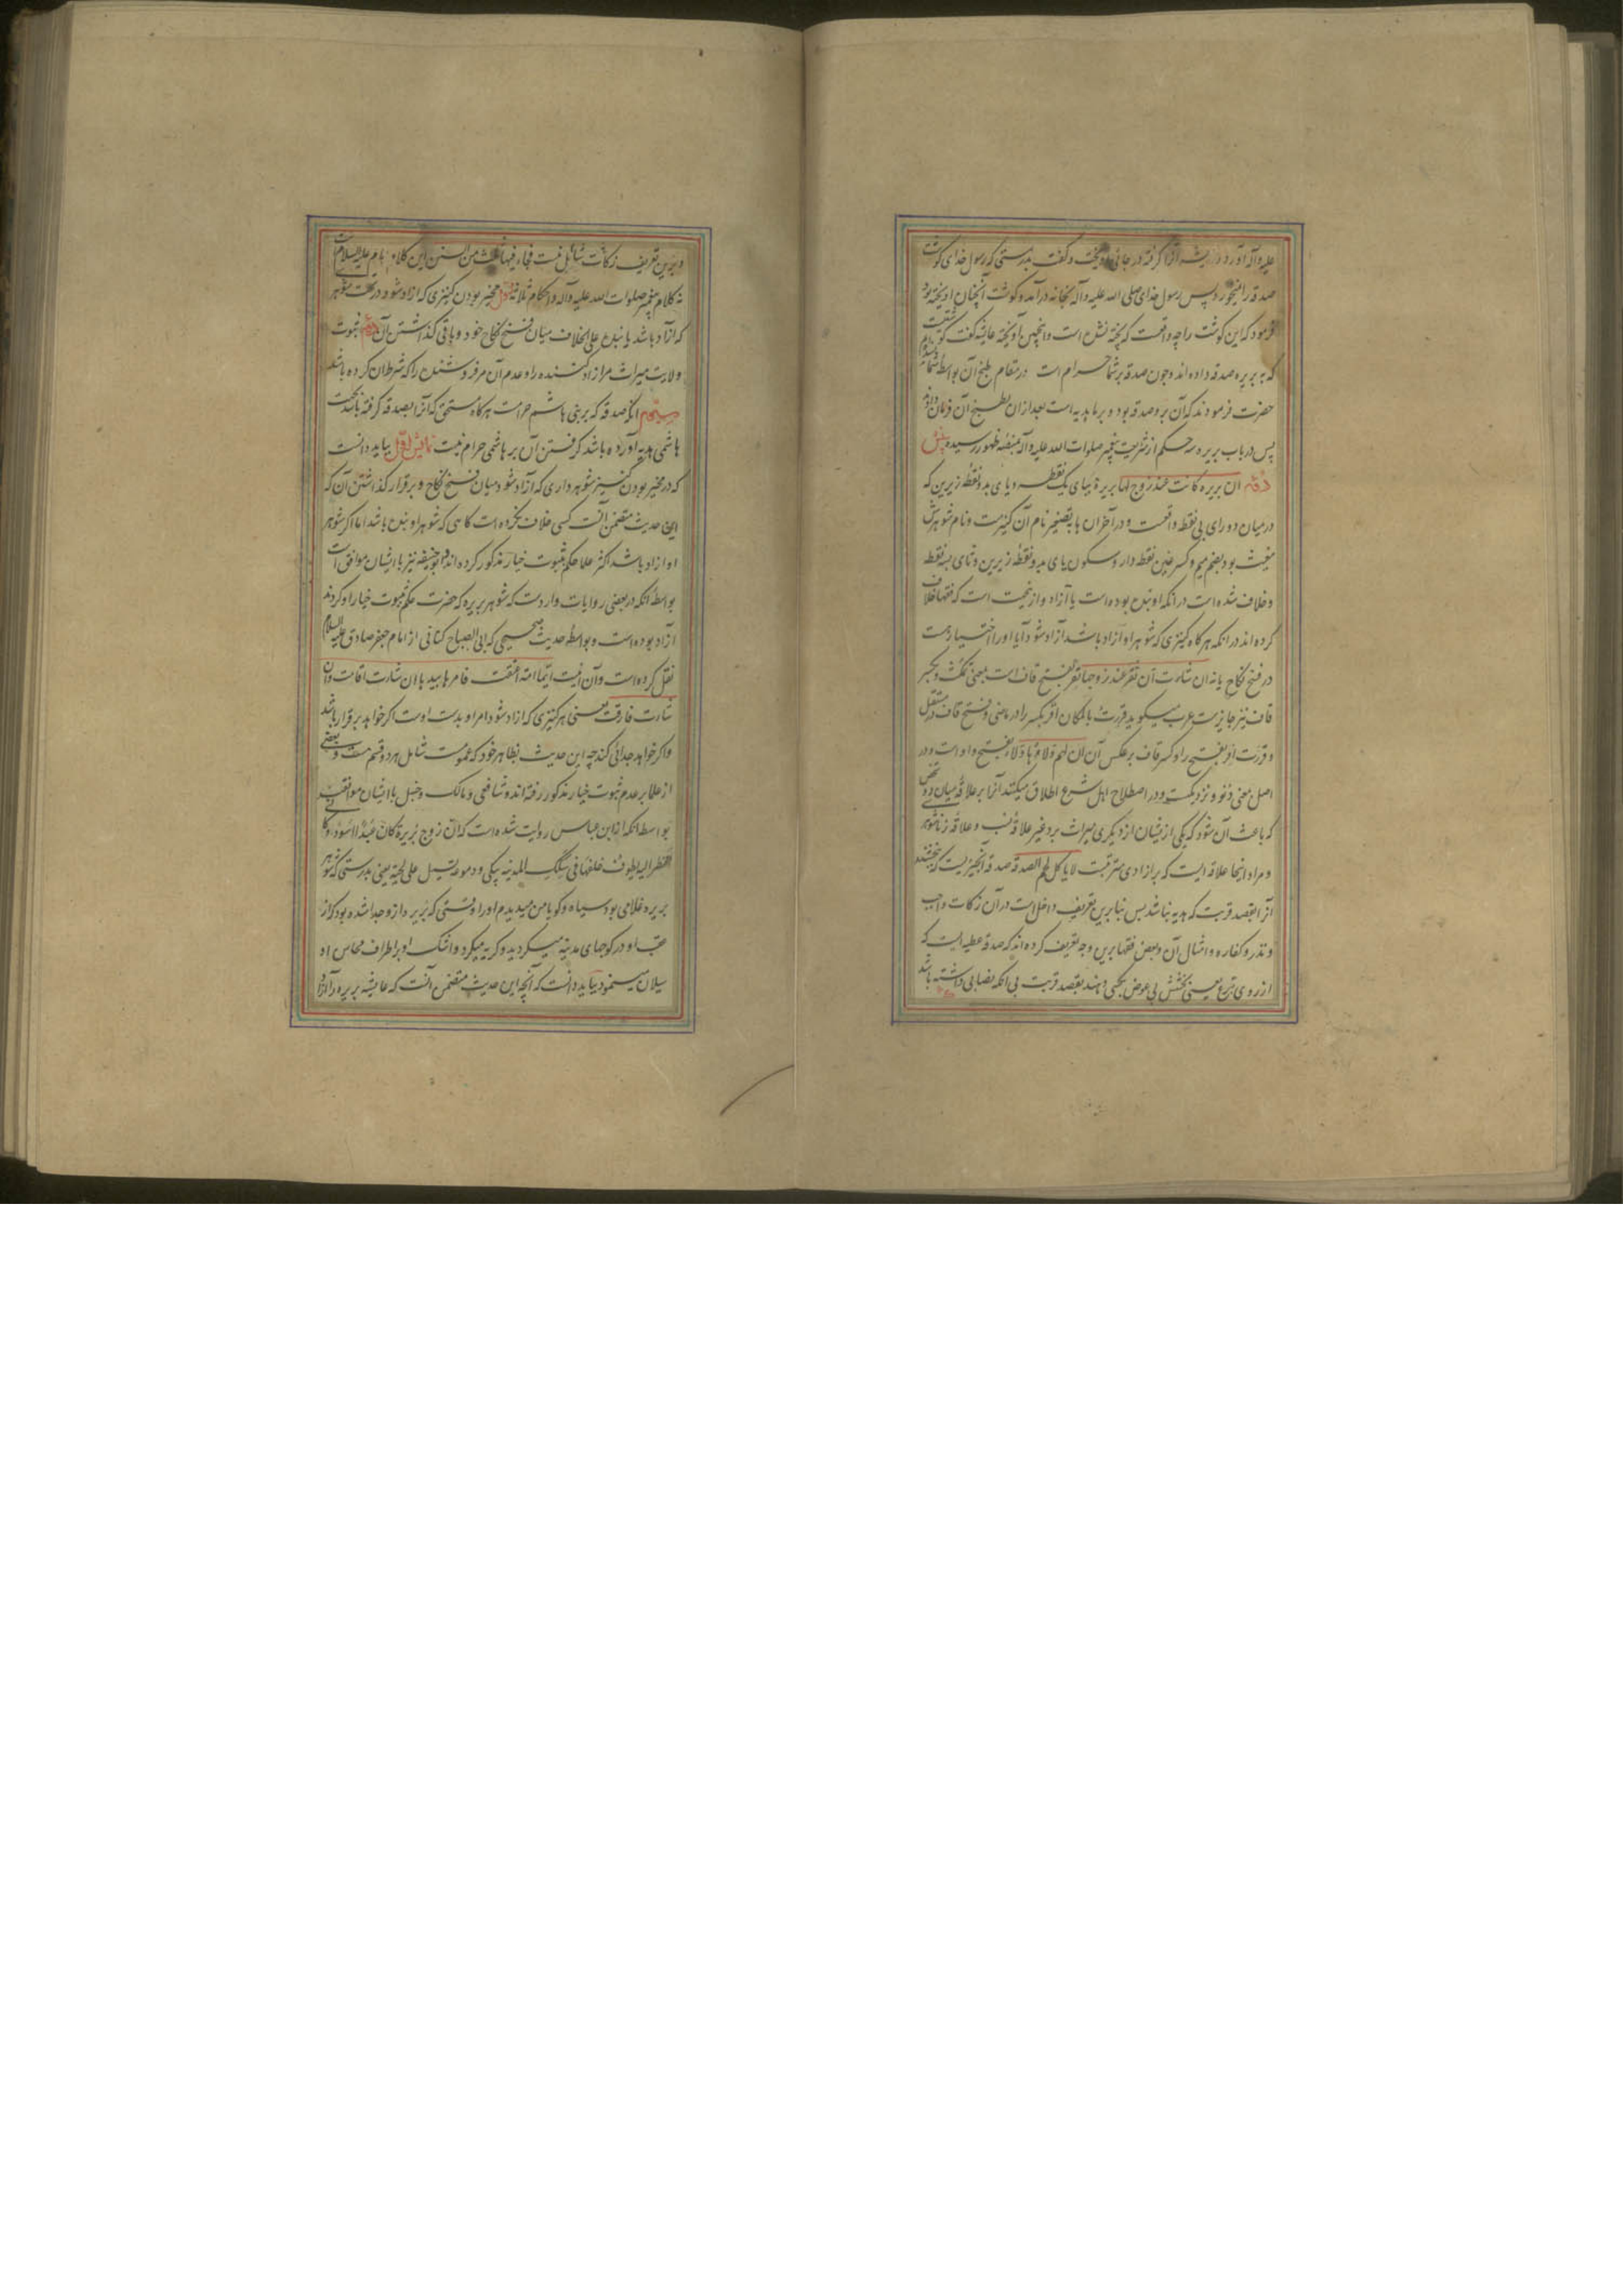 علیه و آله آورد عایشه آنرا گرفته در جائی آویخت و گفت بدرستی که رسول خدای گوشت
صدقه را نمیخورد پس رسول خدای صلی الله علیه و آله بخانه در آمد و گوشت آنچنان آویخته بود
فرمود که این گوشت را چه واقعست که پخته نشده است و اینچنین آویخته عایشه گفت گوشتیست
که به بریره صدقه داده اند و چون صدقه بر شما حرام است در مقام طبخ آن بواسطه شما نشدم
حضرت فرمودند که آن برو صدقه بود و بر ما هدیه است بعد از ان بطبخ آن فرمان دادند
پس در باب بریره سه حکم از شریعت پیغمبر صلوات الله علیه و آله بمنصه ظهور رسیده
ان بریره کانت عند زوج لها بریرة ببای یک نقطه و یای بدو نقطه زیرین که
در میان دو رای بی نقطه واقعست و در آخر ان ها بتصغیر نام آن کنیزست و نام شوهرش
مغیث بود بضم میم و کسر غین نقطه دار و سکون یای بدو نقطه زیرین و ثای بسه نقطه
و خلاف شده است در انکه او بنده بوده است یا آزاد و ازینجهت است که فقها خلاف
کرده اند در انکه هرگاه کنیزی که شوهر او آزاد باشد آزاد شود آیا اورا اختیار هست
در فسخ نکاح یا نه ان شاءت آن تقر عند زوجها تقر بفتح قاف است بمعنی تمکث و بکسر
قاف نیز جایزست عرب میگوید قررت بالمکان اقر بکسر را در ماضی و فتح قاف در مستقبل
و قررت اقر بفتح را و کسر قاف بر عکس آن ان لهم ولاؤها ولاء بفتح واو است و در
اصل معنی دنو و نزدیکیست و در اصطلاح اهل شرع اطلاق میکنند آنرا بر علاقهٔ میان دو شخص
که باعث آن شود که یکی از یشان از دیگری میراث برد غیر علاقهٔ نسب و علاقه زناشوهری
و مراد اینجا علاقه ایست که بر ازادی مترتبست لا یاکل لحم الصدقة صدقه آنچیزیست که بخشند
آنرا بقصد قربت که هدیه نباشد پس بنا برین تعریف داخل است در آن زکات واجب
و نذر و کفاره و امثال آن و بعض فقها برین وجه تعریف کرده اند که صدقه عطیه ایست که
از روی تبرع یعنی بخشش بی عوض بکسی دهند بقصد قربت بی انکه نصابی داشته باشد
و برین تعریف زکات شامل نیست فجاء فیها ثلث من السنن این کلام امام علیه السلام است
نه کلام پیغمبر صلوات الله علیه و آله و احکام ثلاثه اول مخیر بودن کنیزی که ازاد شود در تحت شوهر
که ازاد باشد یا بنده علی الخلاف میان فسخ نکاح خود و باقی گذاشتن آن دویم ثبوت
ولایت میراث مر ازاد کننده را و عدم آن مر فروشنده را که شرط ان کرده باشد
سیم انکه صدقه که بر بنی هاشم حرامست هرگاه مستحقی که آنرا بصدقه گرفته باشد بجهت
هاشمی هدیه آورده باشد گرفتن آن بر هاشمی حرام نیست نمایش اول بباید دانست
که در مخیر بودن کنیز شوهر داری که آزاد شود میان فسخ نکاح و برقرار گذاشتن آن که
این حدیث متضمن آنست کسی خلاف نکرده است گاهی که شوهر او بنده باشد اما اگر شوهر
او ازاد باشد اکثر علما حکم بثبوت خیار مذکور کرده اند و ابو حنیفه نیز با ایشان موافق است
بواسطهٔ انکه در بعضی روایات وارد است که شوهر بریره که حضرت حکم بثبوت خیار او کردند
آزاد بوده است و بواسطهٔ حدیث صحیحی که ابی الصباح کنانی از امام جعفر صادق علیه السلام
نقل کرده است و آن اینست ایما امة اعتقت فامرها بیدها ان شاءت اقامت و ان
شاءت فارقت یعنی هر کنیزی که ازاد شود امر او بدست اوست اگر خواهد برقرار باشد
و اگر خواهد جدائی کند چه این حدیث بظاهر خود که عمومست شامل هر دو قسم هست و بعضی
از علما بر عدم ثبوت خیار مذکور رفته اند و شافعی و مالک و حنبل با ایشان موافقند
بواسطه انکه از ابن عباس روایت شده است که ان زوج بریرة کان عبدا اسود و کانی
انظر الیه یطوف خلفها فی سکک المدینه یبکی و دموعه تسیل علی لحیته یعنی بدرستی که شوهر
بریره غلامی بود سیاه و گویا من میدیدم اورا وقتی که بریره ازو جدا شده بود که از
عقب او در کوچهای مدینه میگردید و گریه میکرد و اشک او بر اطراف محاسن او
سیلان مینمود بباید دانست که آنچه این حدیث متضمن آنست که عایشه بریره را آزاد